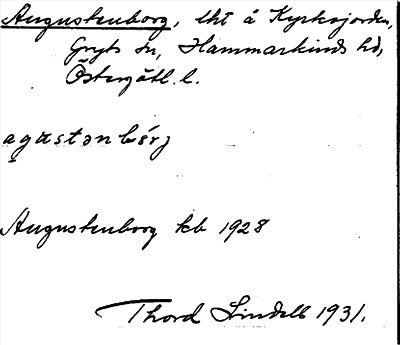 Augustenborg, lht å Kyrkojorden,
Gryts sn, Hammarkinds hd,
Östergötl. l.
agustənbórj
Augustenborg kb 1928
Thord Lindell 1931.